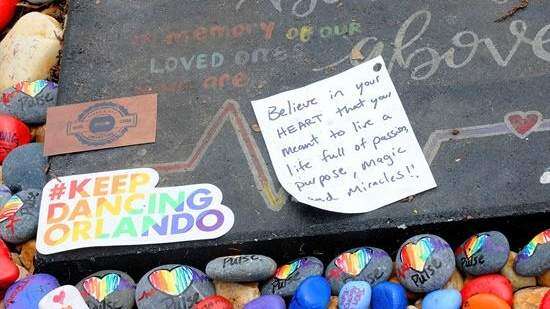 In memory of our
LOVED one
we are
above
Believe in your
HEART that you
meant to live a
life full of passion,
purpose, magic
and Miracles!!
#KEEP
DANCING
ORLANDO
Pulse
Pulse
Pulse
Pulse
Pulse
Pulse
Pulse
Pulse